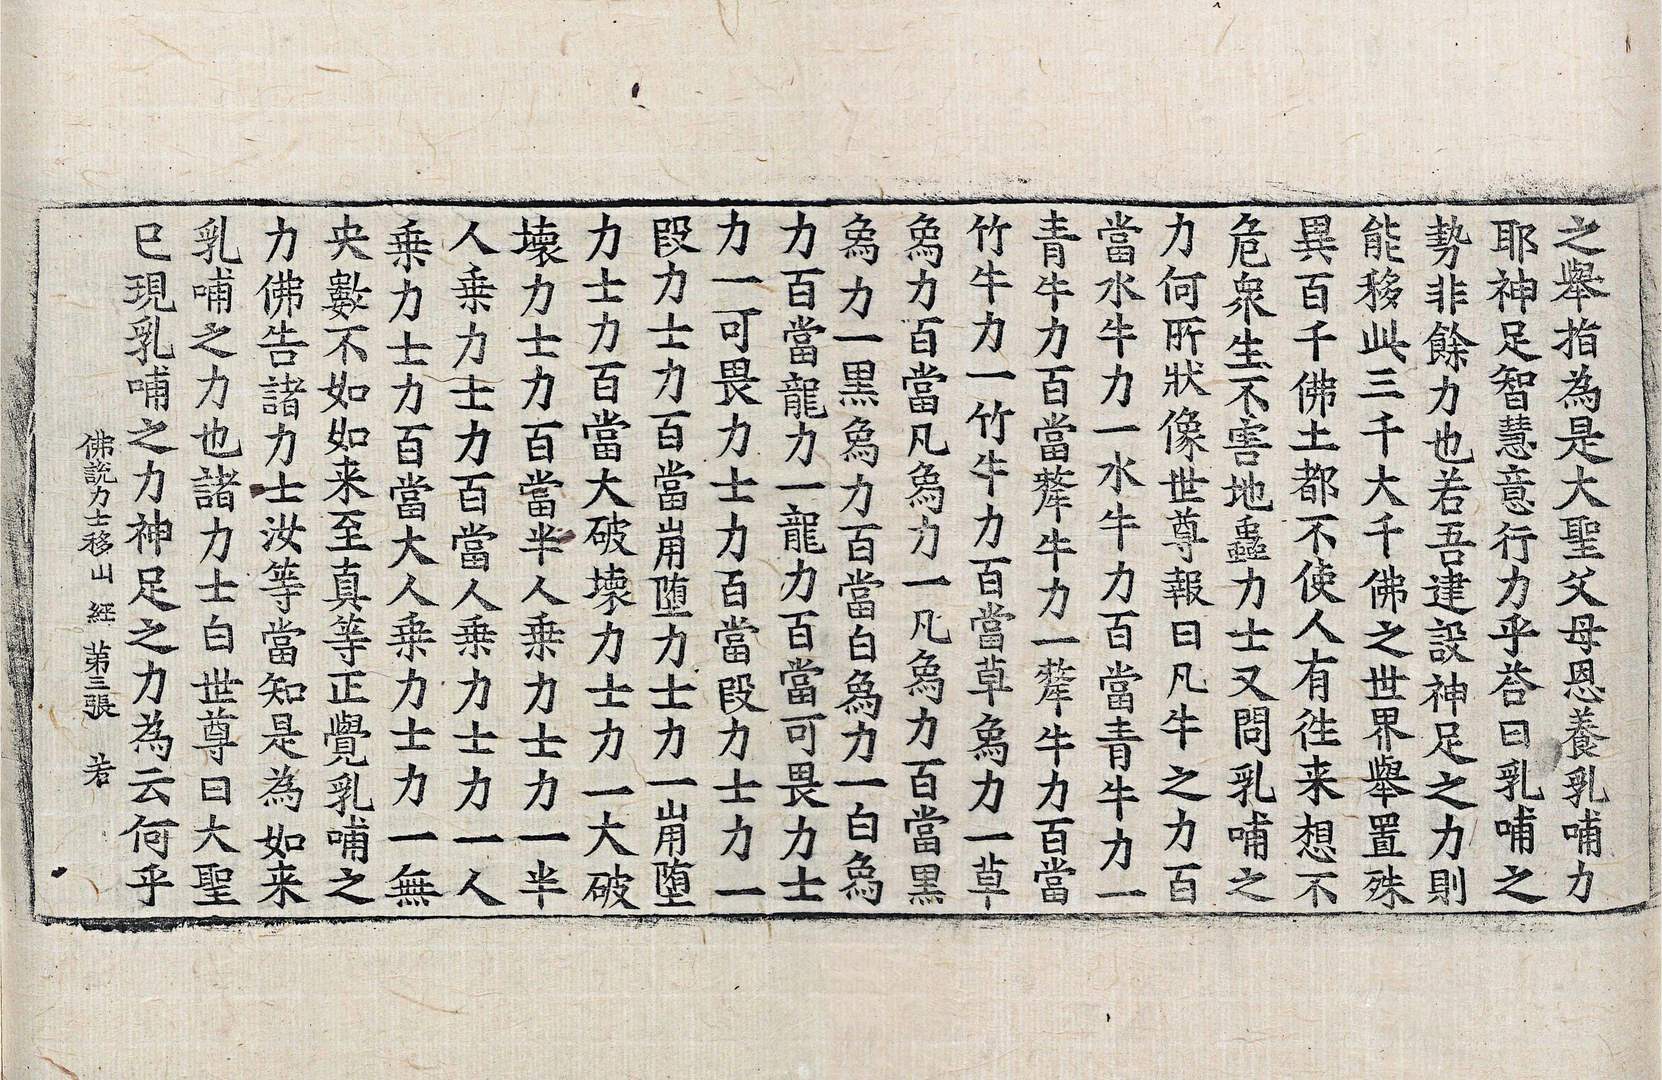 之舉指為是大聖父母恩養乳哺力
耶神足智慧意行力乎荅曰乳哺之
勢非餘力也若吾建設神足之力則
能移此三千大千佛之世界舉置殊
異百千佛土都不使人有往来想不
危衆生不害地蟲力士又問乳哺之
力何所狀像世尊報曰凡牛之力百
當水牛力一水牛力百當青牛力一
青牛力百當犛牛力一犛牛力百當
竹牛力一竹牛力百當草爲力一草
爲力百當凡爲力一凡爲力百當黒
爲力一黒爲力百當白爲力一白爲
力百當龍力一龍力百當可畏力士
力一可畏力士力百當段力士力一
段力士力百當崩墮力士力一崩墮
力士力百當大破壊力士力一大破
壊力士力百當半人乗力士力一半
人乗力士力百當人乗力士力一人
乗力士力百當大人乗力士力一無
央數不如如来至真等正覺乳哺之
力佛告諸力士汝等當知是為如来
乳哺之力也諸力士白世尊曰大聖
已現乳哺之力神足之力為云何乎
佛說力士移山經 第三張 若